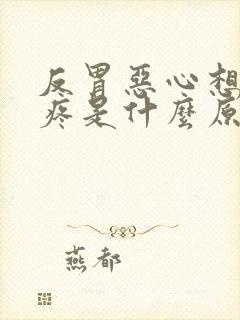 反胃惡心想
疼是什麼原
燕都